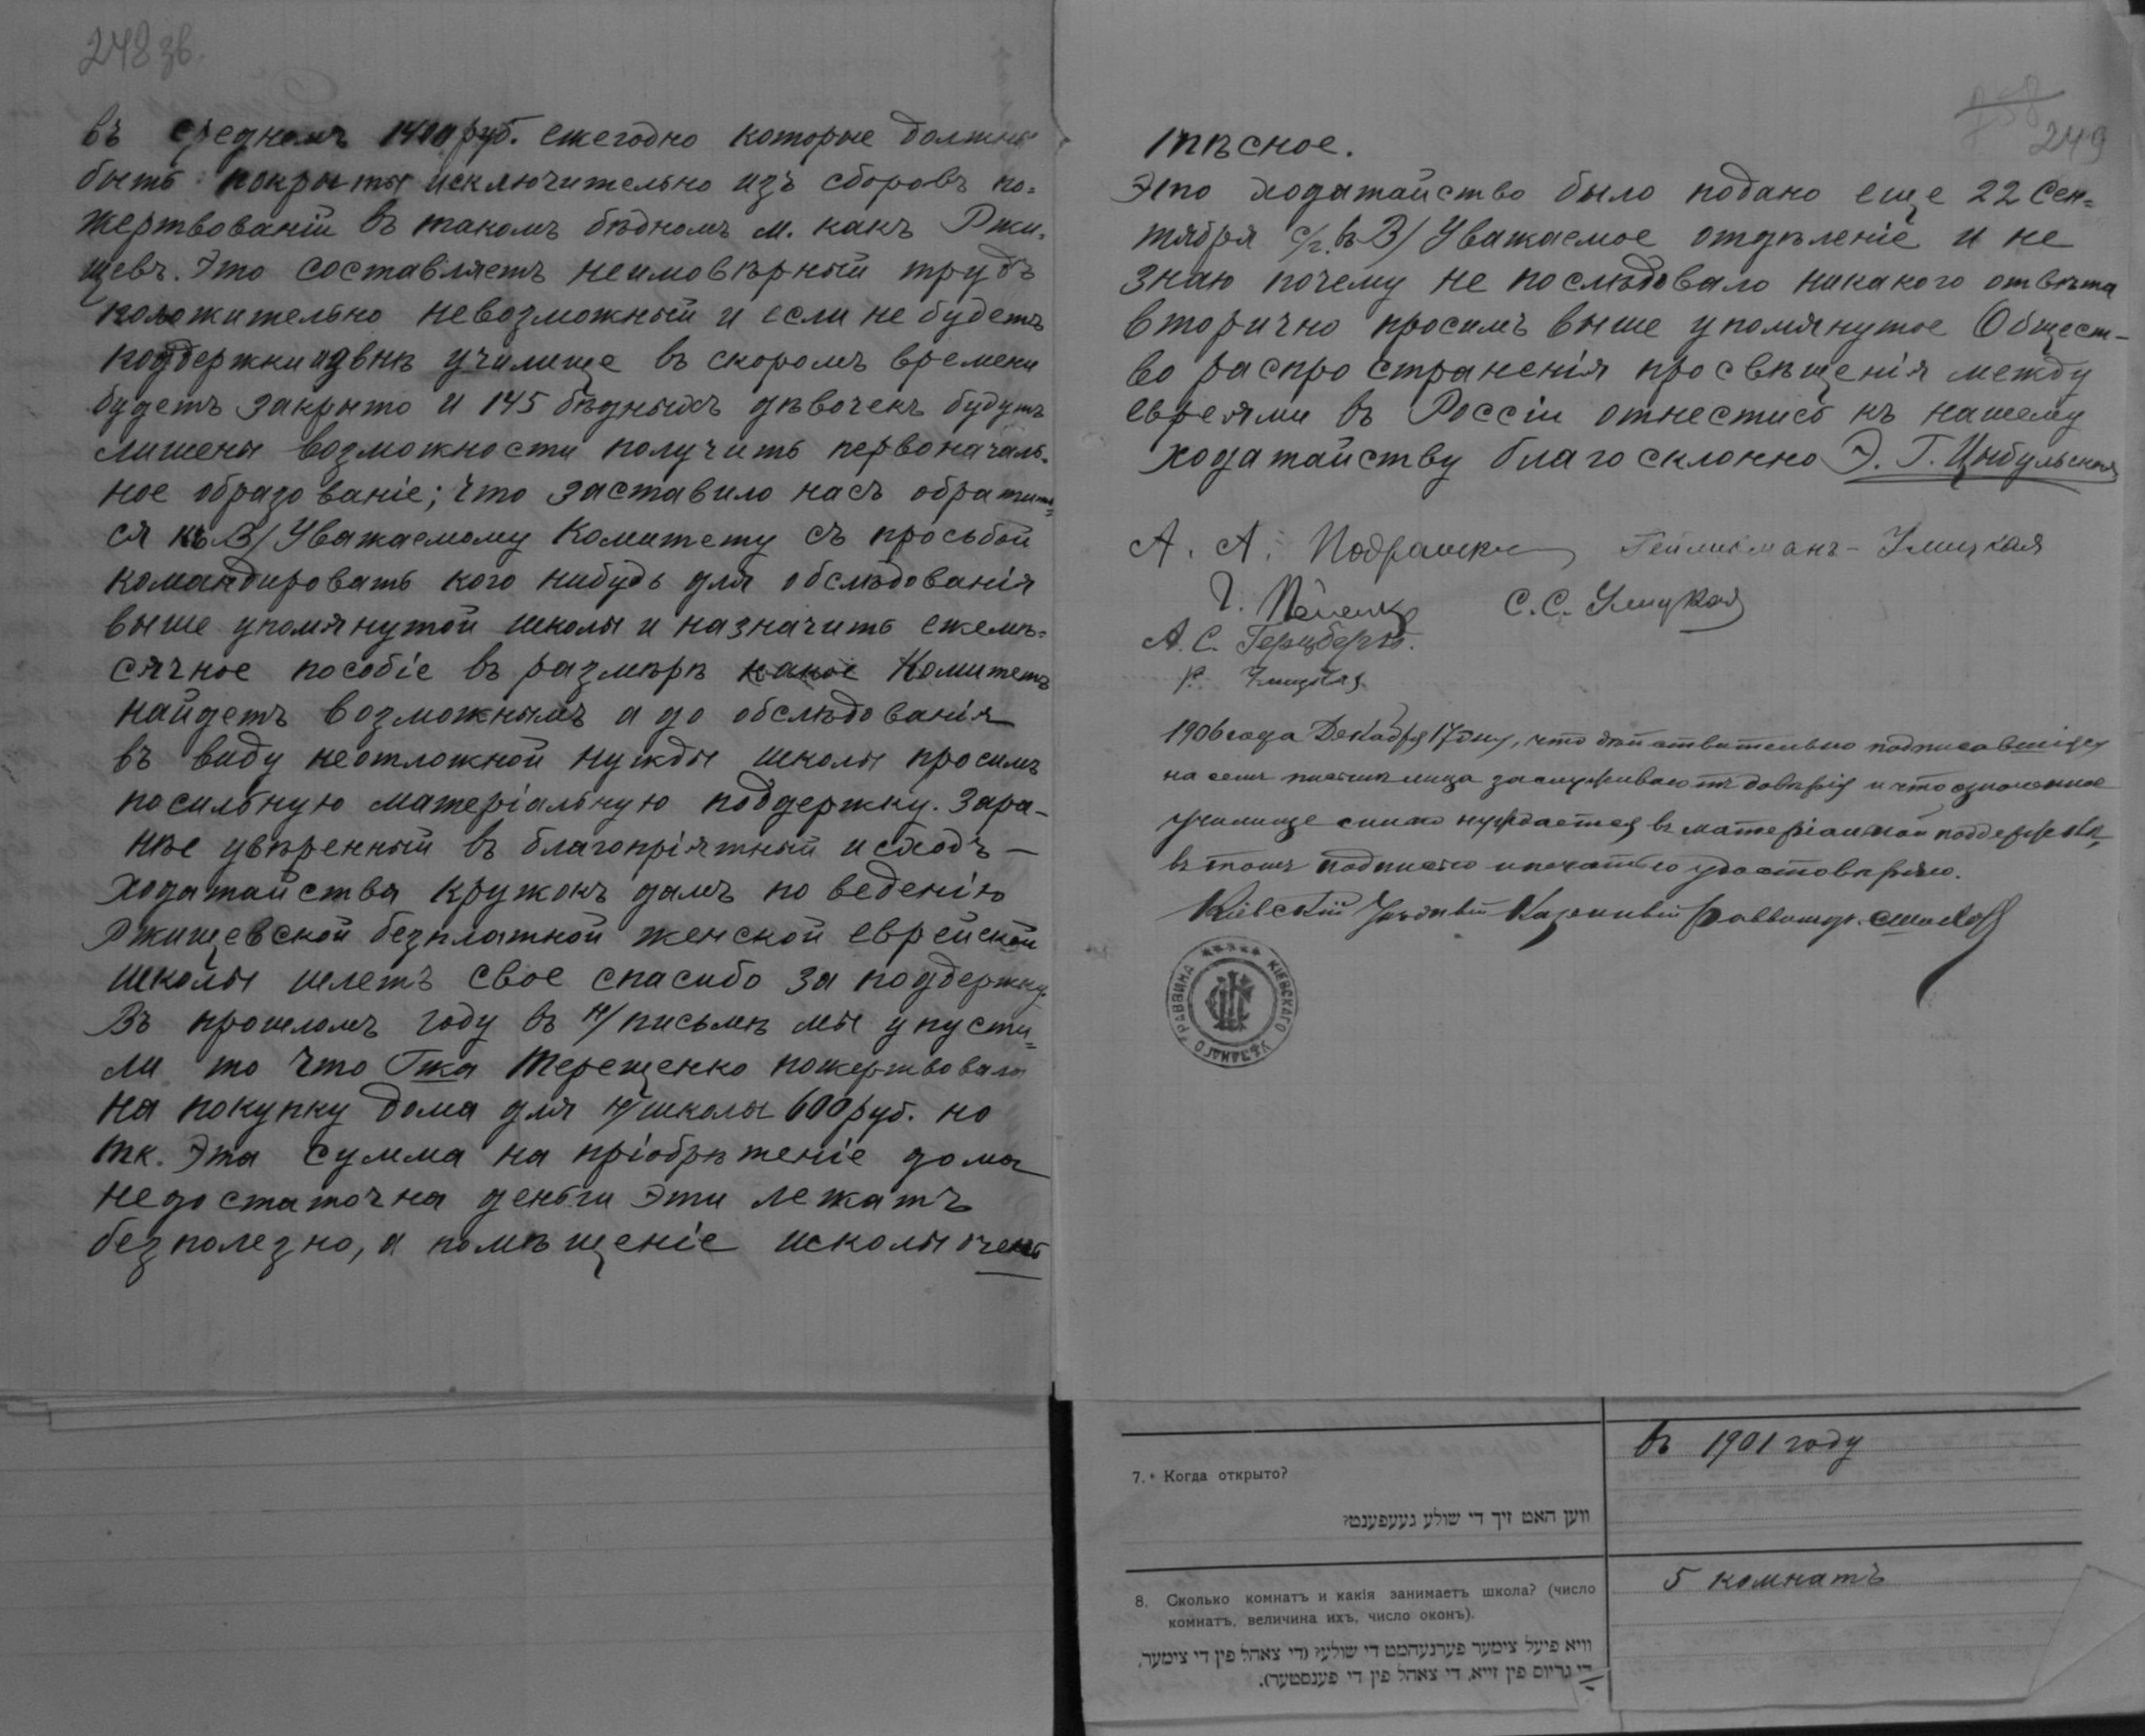 248 зв.
въ среднемъ 1400 руб. ежегодно которые должны
быть покрыты исключительно изъ сборовъ по=
жертвованій въ такомъ бѣдномъ м. какъ Ржи=
щевъ. Это составляетъ неимовѣрный трудъ
положительно невозможный и если не будетъ
поддержки извнѣ училище въ скоромъ времени
будетъ закрыто и 145 бѣдныхъ дѣвочекъ будутъ
лишены возможности получить первоначаль=
ное образованіе; что заставило насъ обратить=
ся къ В/Уважаемому Комитету съ просьбой
командировать кого нибудь для обслѣдованія
выше упомянутой школы и назначить ежемѣ=
сячное пособіе въ размѣрѣ какое Комитетъ
найдетъ возможнымъ а до обслѣдованія
въ виду неотложной нужды школы просимъ
посильную матеріальную поддержку. Зара-
нѣе увѣренный въ благопріятный исходъ —
ходатайства кружокъ дамъ по веденію
Ржищевской безплатной женской еврейской
школы шлетъ свое спасибо за поддержку.
Въ прошломъ году въ н/письмѣ мы упусти=
ли то что Гжа Терещенко пожертвовала
на покупку дома для н/школы 600 руб. но
тк. эта сумма на пріобрѣтеніе дома
недостаточна деньги эти лежатъ
безполезно, а помѣщеніе школы очень
249
тѣсное.
Это ходатайство было подано еще 22 Сен=
тября с/г. въ В/Уважаемое отдѣленіе и не
знаю почему не послѣдовало никакого отвѣта
вторично просимъ выше упомянутое Общест-
во распространенія просвѣщенія между
евреями въ Россіи отнестись къ нашему
ходатайству благосклонно Э. Г. Цыбульская
А. А. Подрашка Гейлисманъ-Улицкая
С. С. Улицкая
А. С. Герцбергъ.
Р. Улицкая
1906 года Декабря 17 дня, что дѣйствительно подписавшіеся
на семъ письмѣ лица заслуживаютъ довѣрія и что означенное
училище сильно нуждается въ матеріальной поддержкѣ,
въ томъ подписью и печатью удостовѣряю.
Кіевскій Уѣздный Казенный Раввинъ
КІЕВСКАГО УѢЗДНАГО РАВВИНА
7. Когда открыто?
ווען האט זיך די שולע געעפענט?
въ 1901 году
8. Сколько комнатъ и какія занимаетъ школа? (число
комнатъ, величина ихъ, число оконъ).
וויא פיעל צימער פערנעהמט די שולע? (די צאהל פין די צימער,
די גרויס פין זייא, די צאהל פין די פענסטער).
5 комнатъ